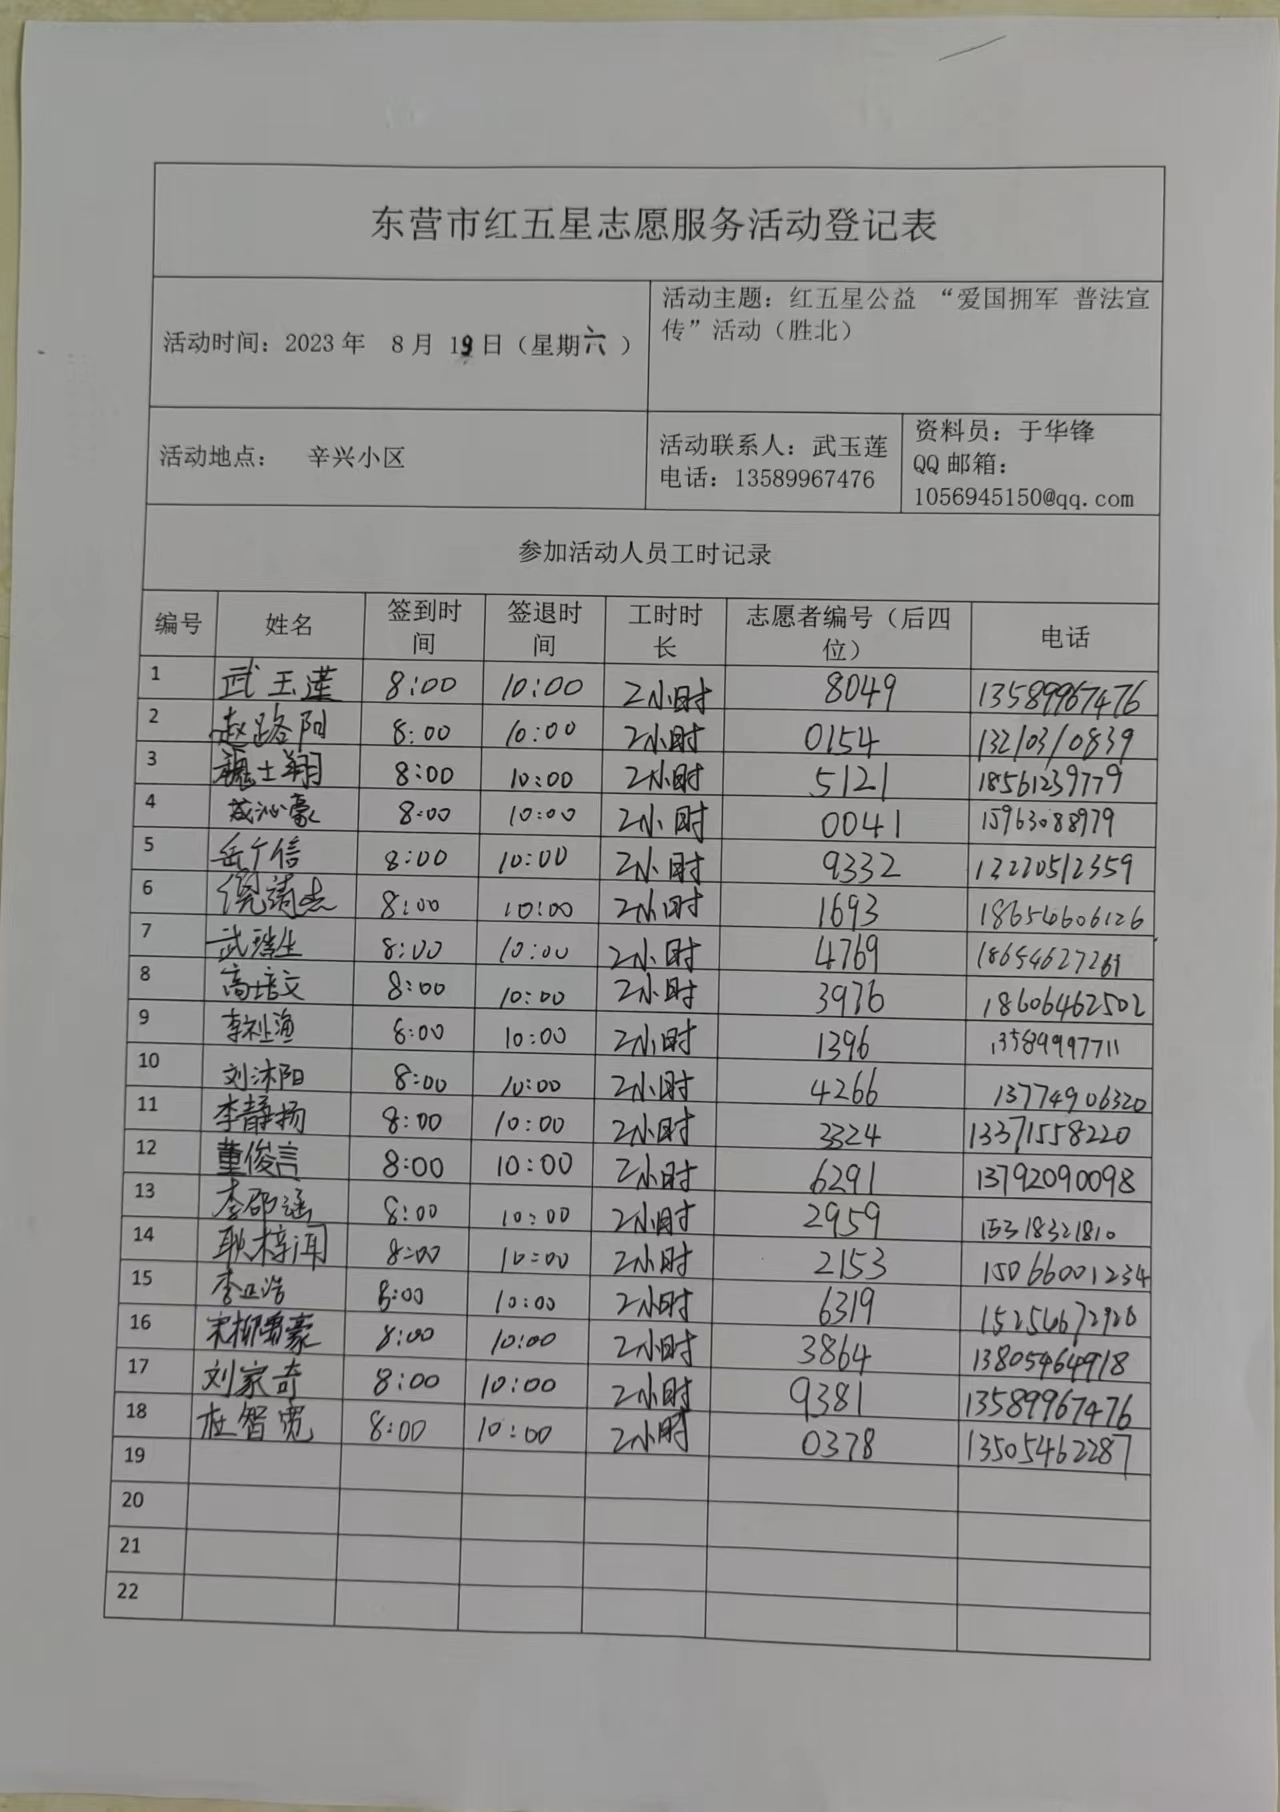 东营市红五星志愿服务活动登记表
活动时间：2023年 8月 19日（星期六）
活动主题：红五星公益 “爱国拥军 普法宣
传”活动（胜北）
活动地点： 辛兴小区
活动联系人：武玉莲
电话：13589967476
资料员：于华锋
QQ邮箱：
1056945150@qq.com
参加活动人员工时记录
编号 姓名 签到时间 签退时间 工时时长 志愿者编号（后四位） 电话
1 武玉莲 8:00 10:00 2小时 8049 13589967476
2 赵路阳 8:00 10:00 2小时 0154 13210310839
3 魏士翔 8:00 10:00 2小时 5121 18561239779
4 8:00 10:00 2小时 0041 15963088979
5 岳广信 8:00 10:00 2小时 9332 13220512359
6 倪清杰 8:00 10:00 2小时 1693 18654606126
7 8:00 10:00 2小时 4769 18654627261
8 高培文 8:00 10:00 2小时 3976 18606462502
9 8:00 10:00 2小时 1396 13589997711
10 刘沐阳 8:00 10:00 2小时 4266 13774906320
11 李静扬 8:00 10:00 2小时 3324 13371558220
12 董俊言 8:00 10:00 2小时 6291 13792090098
13 李邵涵 8:00 10:00 2小时 2959 15318321810
14 8:00 10:00 2小时 2153 15066001234
15 李正浩 8:00 10:00 2小时 6319 15254672920
16 8:00 10:00 2小时 3864 13805464918
17 刘家奇 8:00 10:00 2小时 9381 13589967476
18 杜智宽 8:00 10:00 2小时 0378 13505462287
19
20
21
22